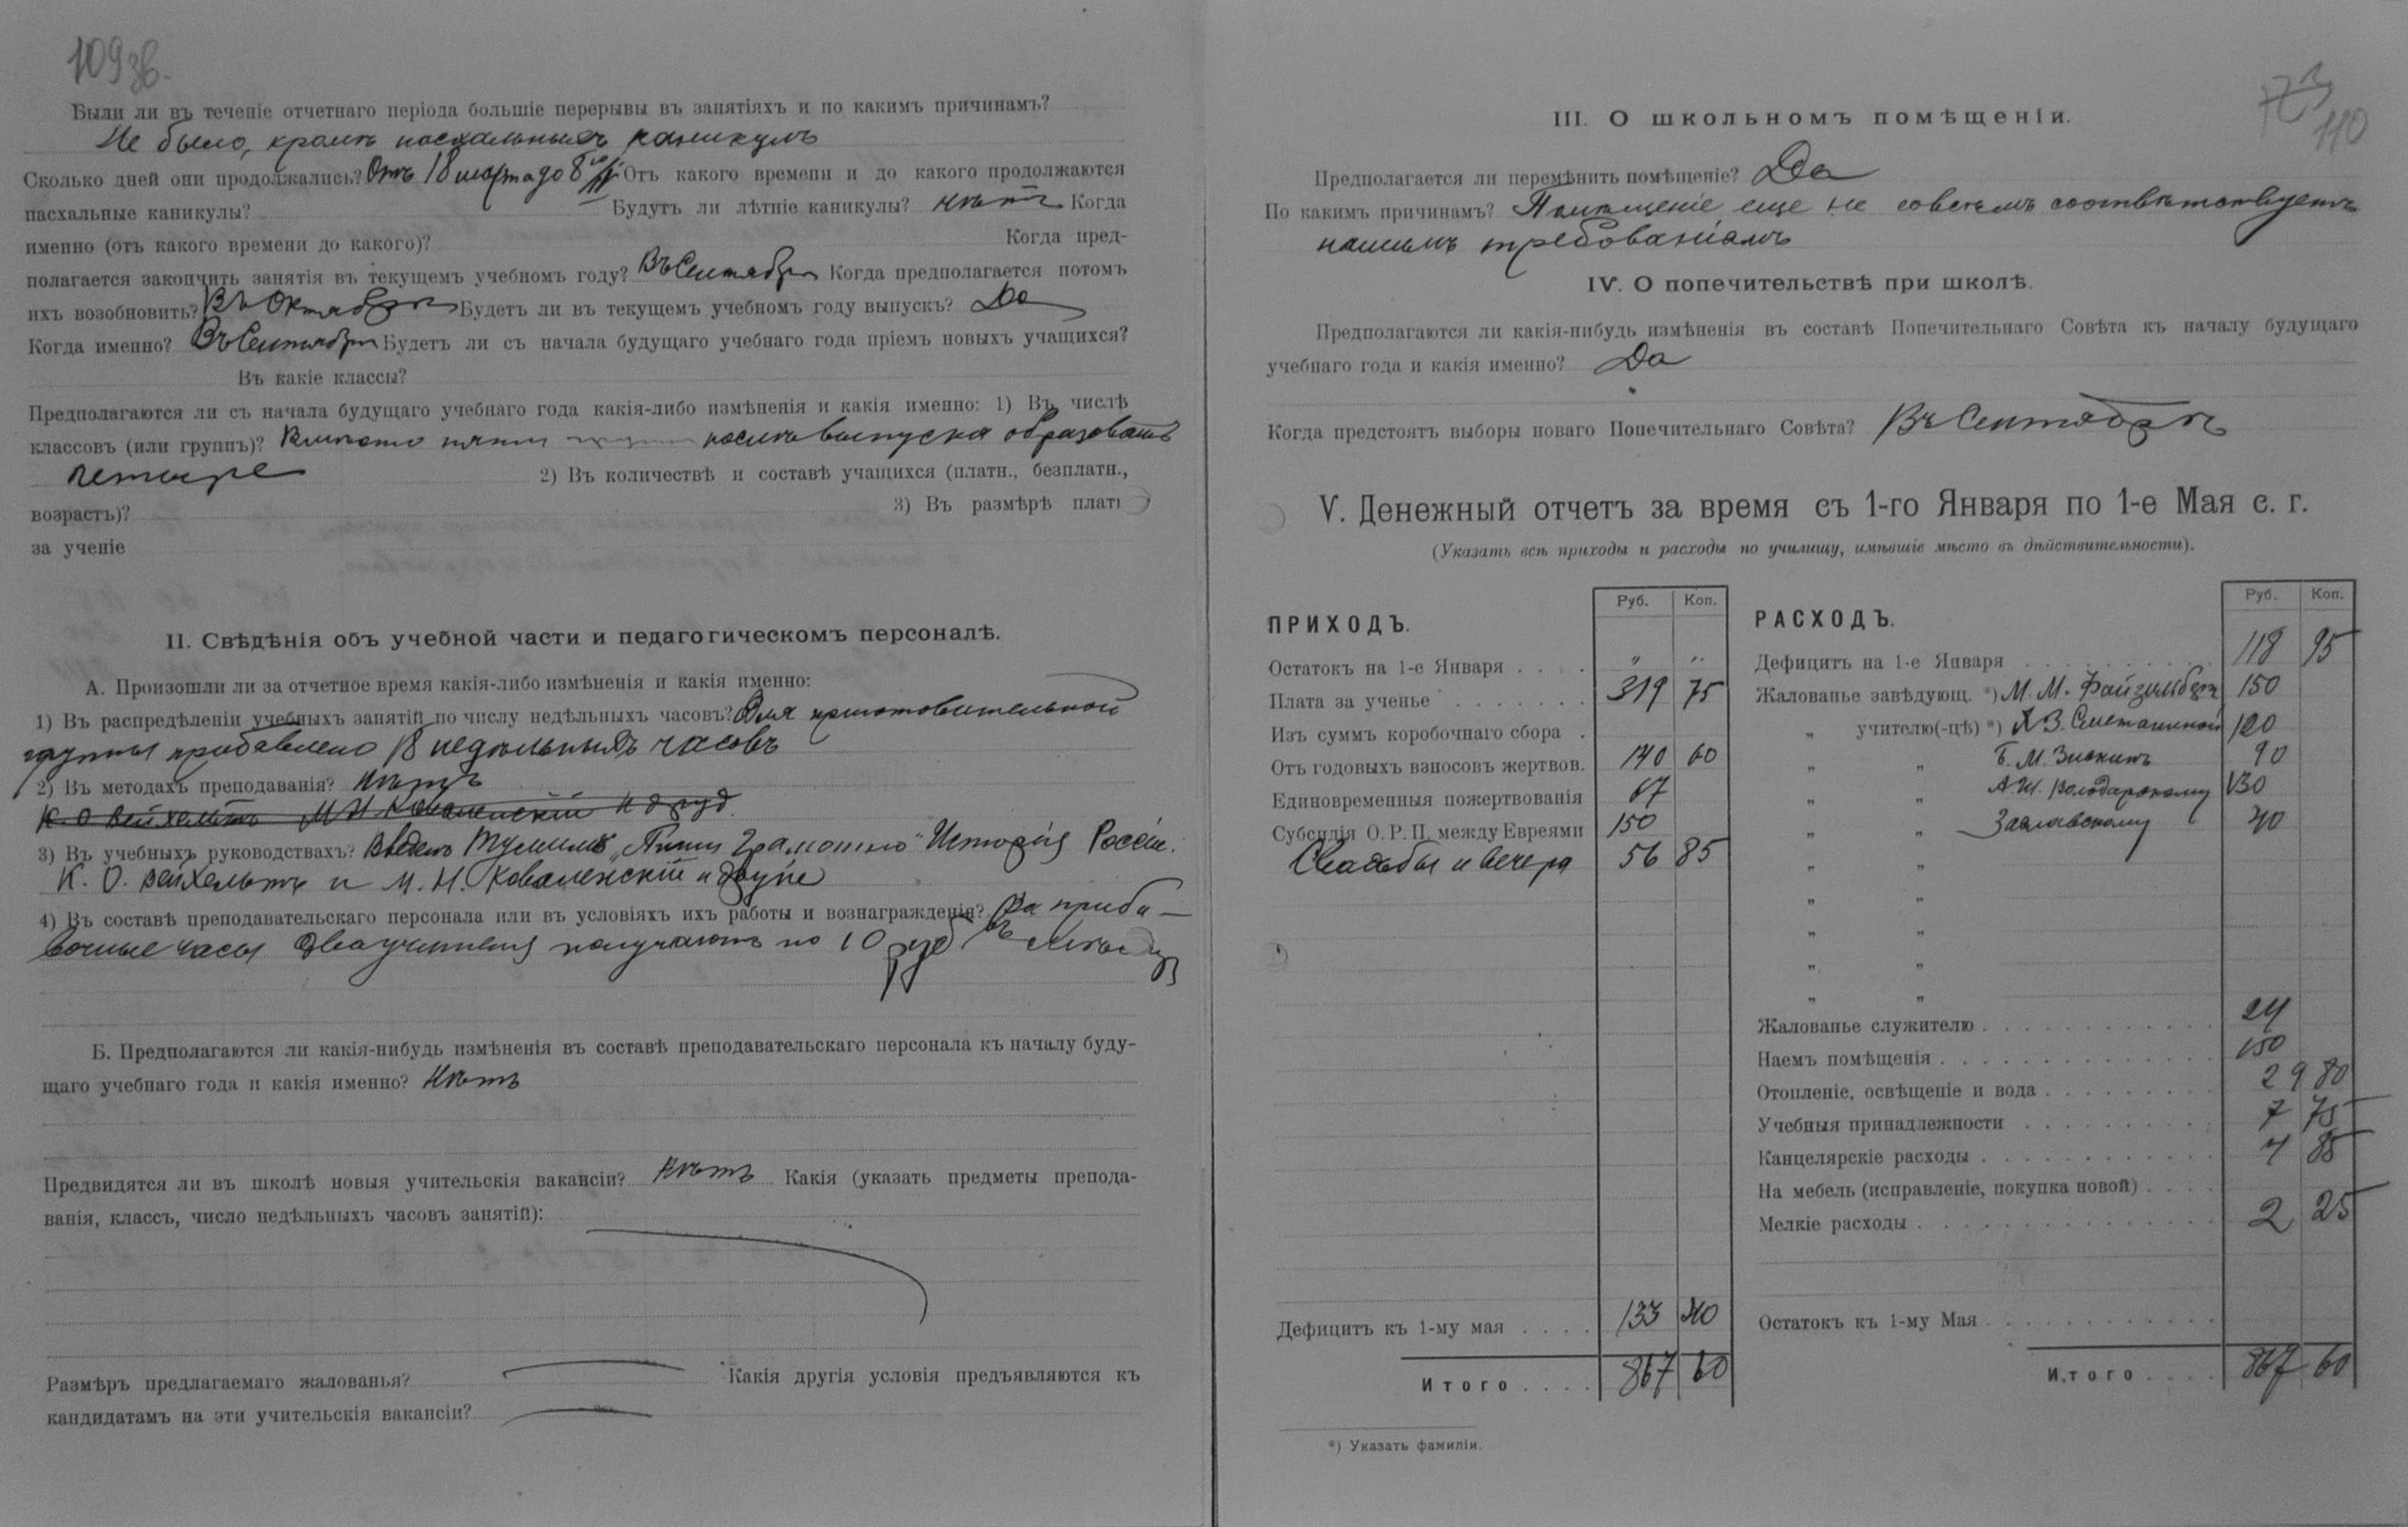 109 зв.
Были ли въ теченіе отчетнаго періода большіе перерывы въ занятіяхъ и по какимъ причинамъ?
Не было, кромѣ пасхальныхъ каникулъ
Сколько дней они продолжались? Отъ 18 марта до 8 Отъ какого времени и до какого продолжаются
пасхальные каникулы? Будутъ ли лѣтніе каникулы? нѣтъ Когда
именно (отъ какого времени до какого)? Когда пред-
полагается закончить занятія въ текущемъ учебномъ году? Въ Сентябрѣ Когда предполагается потомъ
ихъ возобновить? Въ Октябрѣ Будетъ ли въ текущемъ учебномъ году выпускъ? Да
Когда именно? Въ Сентябрѣ Будетъ ли съ начала будущаго учебнаго года пріемъ новыхъ учащихся?
Въ какіе классы?
Предполагаются ли съ начала будущаго учебнаго года какія-либо измѣненія и какія именно: 1) Въ числѣ
классовъ (или группъ)? Вмѣсто пяти послѣ выпуска образовать
четыре 2) Въ количествѣ и составѣ учащихся (платн., безплатн.,
возрастъ)? 3) Въ размѣрѣ платы
за ученіе
II. Свѣдѣнія объ учебной части и педагогическомъ персоналѣ.
А. Произошли ли за отчетное время какія-либо измѣненія и какія именно:
1) Въ распредѣленіи учебныхъ занятій по числу недѣльныхъ часовъ? Для приготовительной
группы прибавлено 18 недѣльныхъ часовъ
2) Въ методахъ преподаванія? Нѣтъ
К. О. Вейхельтъ М Н Коваленскій и друг.
3) Въ учебныхъ руководствахъ? Введенъ Тулиновъ „Пиши грамотно" Исторія Россіи.
К. О. Вейхельтъ и М. Н. Коваленскій и другіе
4) Въ составѣ преподавательскаго персонала или въ условіяхъ ихъ работы и вознагражденія? За приба-
вочные часы два учителя получаютъ по 10 руб въ мѣсяцъ
Б. Предполагаются ли какія-нибудь измѣненія въ составѣ преподавательскаго персонала къ началу буду-
щаго учебнаго года и какія именно? Нѣтъ
Предвидятся ли въ школѣ новыя учительскія вакансіи? Нѣтъ Какія (указать предметы препода-
ванія, классъ, число недѣльныхъ часовъ занятій):
Размѣръ предлагаемаго жалованья? Какія другія условія предъявляются къ
кандидатамъ на эти учительскія вакансіи?
73
110
III. О школьномъ помѣщеніи.
Предполагается ли перемѣнить помѣщеніе? Да
По какимъ причинамъ? Помѣщеніе еще не совсѣмъ соотвѣтствуетъ
нашимъ требованіямъ
IV. О попечительствѣ при школѣ.
Предполагаются ли какія-нибудь измѣненія въ составѣ Попечительнаго Совѣта къ началу будущаго
учебнаго года и какія именно? Да
Когда предстоятъ выборы новаго Попечительнаго Совѣта? Въ Сентябрѣ
V. Денежный отчетъ за время съ 1-го Января по 1-е Мая с. г.
(Указать всѣ приходы и расходы по училищу, имѣвшіе мѣсто въ дѣйствительности).
ПРИХОДЪ. Руб. Коп.
Остатокъ на 1-е Января . . . . „ „
Плата за ученье . . . . . . . 319 75
Изъ суммъ коробочнаго сбора .
Отъ годовыхъ взносовъ жертвов. 140 60
Единовременныя пожертвованія 67
Субсидія О. Р. П. между Евреями 150
Свадьбы и вечера 56 85
Дефицитъ къ 1-му мая . . . . 133 40
Итого . . . . 867 60
*) Указать фамиліи.
РАСХОДЪ. Руб. Коп.
Дефицитъ на 1-е Января . . . . . . . . . . 118 95
Жалованье завѣдующ. *) М. М. Файзильберъ 150
„ учителю(-цѣ) *) Х. В. Сметаниной 120
„ „ Б. М. Зискинъ 90
„ „ А. Ш. Володарскому 130
„ „ Заславскому 40
„ „
„ „
„ „
„ „
„ „
Жалованье служителю . . . . . . . . . . . . 24
Наемъ помѣщенія . . . . . . . . . . . . . . 150
Отопленіе, освѣщеніе и вода . . . . . . . . . 29 80
Учебныя принадлежности . . . . . . . . . . 7 75
Канцелярскіе расходы . . . . . . . . . . . . 4 85
На мебель (исправленіе, покупка новой) . . . .
Мелкіе расходы . . . . . . . . . . . . . . . 2 25
Остатокъ къ 1-му Мая . . . . . . . . . . . .
Итого . . . . 867 60